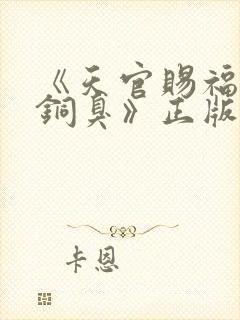 《天官赐福
铜臭》正版
卡恩